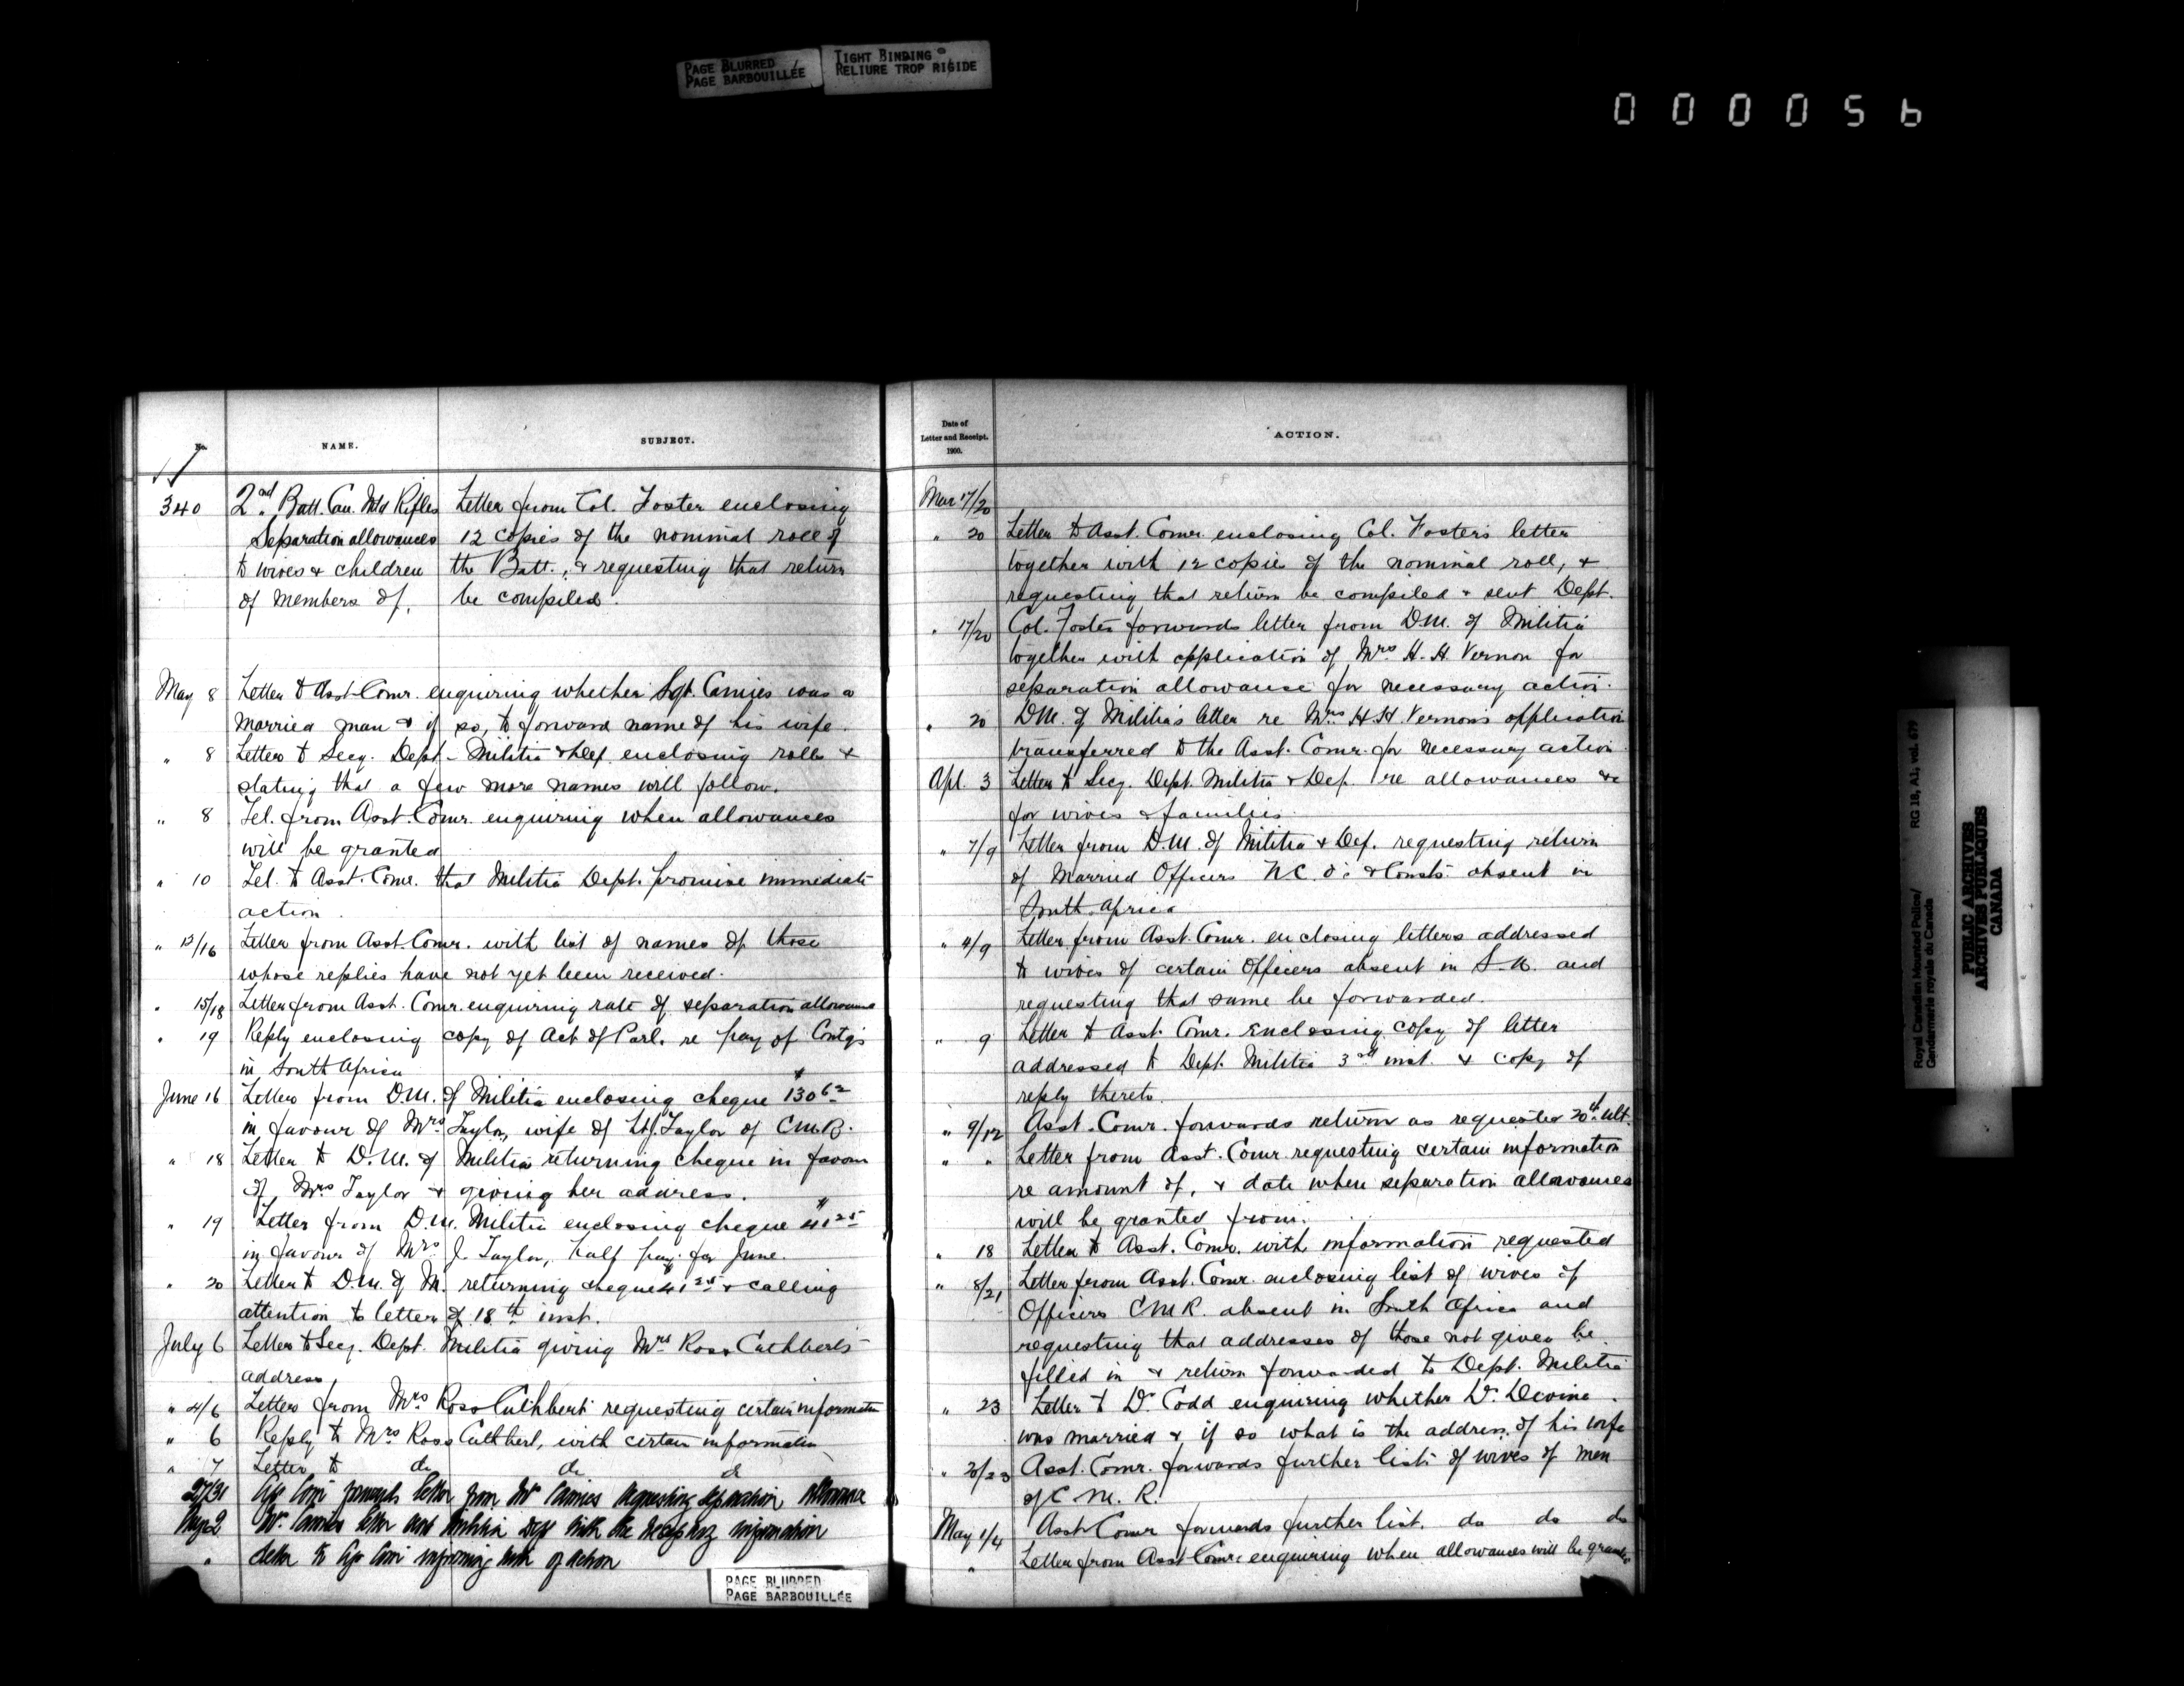 PAGE BLURRED
PAGE BARBOUILLÉE
TIGHT BINDING
RELIURE TROP RIGIDE
000056
No.
NAME.
SUBJECT.
340
2nd Batt. Can. Mtd Rifles
Separation allowances
to wives & children
of members of.
Letter from Col. Foster enclosing
12 copies of the nominal roll of
the Batt., & requesting that return
be compiled.
May 8 Letter to Asst. Comr. enquiring whether Sgt. Camies was a
married man & if so, to forward name of his wife.
" 8 Letter to Secy. Dept. Militia & Def. enclosing rolls &
stating that a few more names will follow.
" 8 Tel. from Asst. Comr. enquiring when allowances
will be granted
" 10 Tel. to Asst. Comr. that Militia Dept. promise immediate
action.
" 13/16 Letter from Asst. Comr. with list of names of those
whose replies have not yet been received.
" 15/18 Letter from Asst. Comr. enquiring rate of separation allowance
" 19 Reply enclosing copy of Act of Parl. re pay of Contg's
in South Africa
June 16 Letter from D.M. of Militia enclosing cheque $130 62
in favour of Mrs Taylor, wife of Lt. J. Taylor of C.M.R.
" 18 Letter to D.M. of Militia returning cheque in favour
of Mrs Taylor & giving her address.
" 19 Letter from D.M. Militia enclosing cheque $41 25
in favour of Mrs J. Taylor, half pay for June.
" 20 Letter to D.M. of M. returning cheque 41 25 & calling
attention to letter of 18th inst.
July 6 Letter to Secy. Dept. Militia giving Mrs Ross Cuthbert's
address
" 4/6 Letter from Mrs Ross Cuthbert requesting certain information
" 6 Reply to Mrs Ross Cuthbert, with certain information
" 7 Letter to do do do
27/31 forwards letter from Mrs Camies requesting separation allowance
Aug 2 Mrs Camies letter sent Militia Dept with the necessary information
" Letter to informing him of action
PAGE BLURRED
PAGE BARBOUILLÉE
Date of
Letter and Receipt.
1900.
ACTION.
Mar 17/20
" 20 Letter to Asst. Comr. enclosing Col. Foster's letter
together with 12 copies of the nominal roll, &
requesting that return be compiled & sent Dept.
" 17/20 Col. Foster forwards letter from D.M. of Militia
together with application of Mrs H. H. Vernon for
separation allowance for necessary action.
" 20 D.M. of Militia's letter re Mrs H. H. Vernon's application
transferred to the Asst. Comr. for necessary action.
Apl. 3 Letter to Secy. Dept. Militia & Def. re allowances &c
for wives & families.
" 7/9 Letter from D.M. of Militia & Def. requesting return
of Married Officers N.C.O's & Consts absent in
South Africa
" 4/9 Letter from Asst. Comr. enclosing letters addressed
to wives of certain Officers absent in S.A. and
requesting that same be forwarded.
" 9 Letter to Asst. Comr. enclosing copy of letter
addressed to Dept. Militia 3rd inst. & copy of
reply thereto.
" 9/12 Asst. Comr. forwards return as requested 20th ult.
" " Letter from Asst. Comr. requesting certain information
re amount of, & date when separation allowances
will be granted from.
" 18 Letter to Asst. Comr. with information requested
" 8/21 Letter from Asst. Comr. enclosing list of wives of
Officers C.M.R. absent in South Africa and
requesting that addresses of those not given be
filled in & return forwarded to Dept. Militia
" 23 Letter to Dr. Codd enquiring whether Dr. Devine
was married & if so what is the address of his wife
" 20/23 Asst. Comr. forwards further lists of wives of men
of C.M.R.
May 1/4 Asst Comr forwards further list. do do do
" Letter from Asst. Comr. enquiring when allowances will be granted
Royal Canadian Mounted Police/
Gendarmerie royale du Canada
RG 18, A1, vol. 679
PUBLIC ARCHIVES
ARCHIVES PUBLIQUES
CANADA